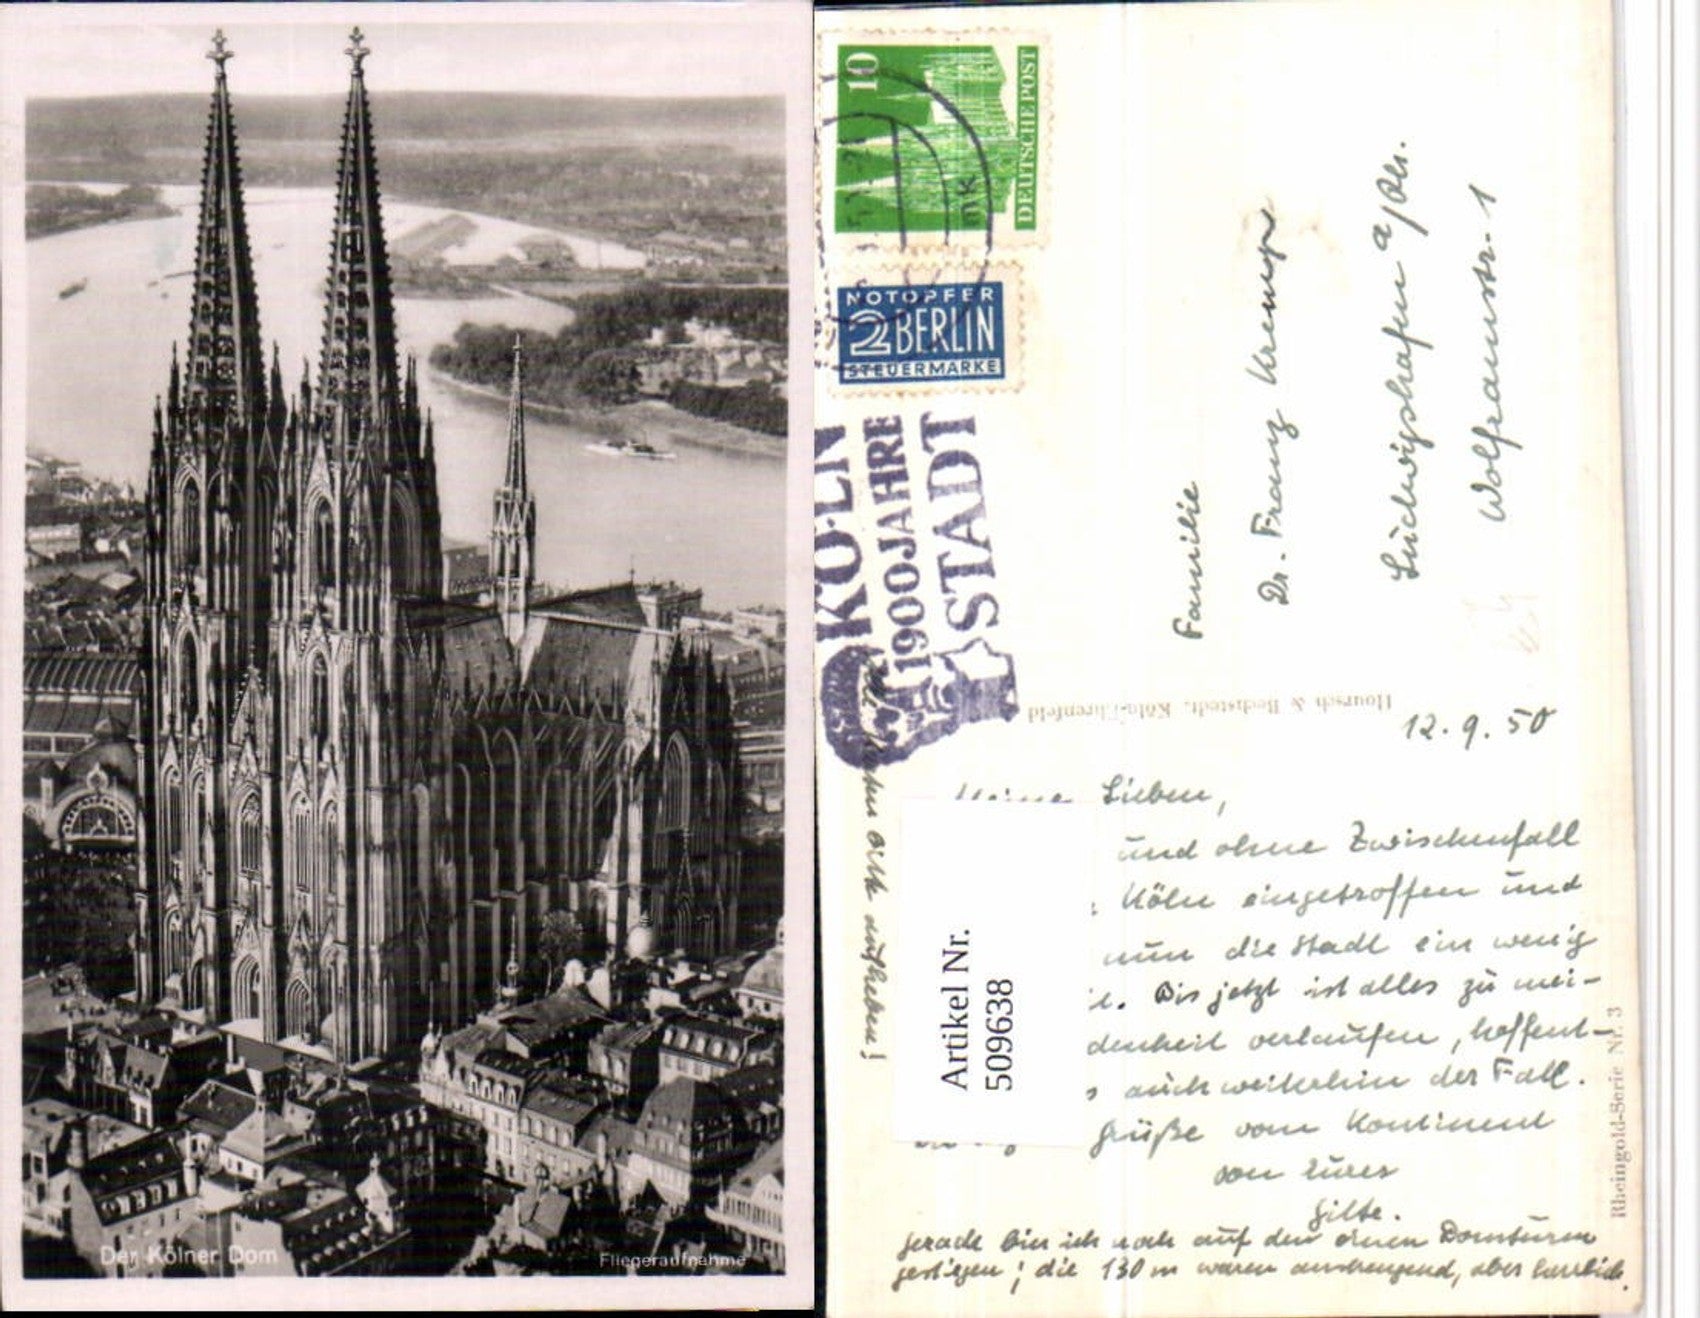 Der Kölner Dom
Fliegeraufnahme
10
DEUTSCHE POST
NOTOPFER
2 BERLIN
STEUERMARKE
KÖLN
1900 JAHRE
STADT
Familie
Dr. Franz
Ludwigshafen a/Rh.
Wolframstr. 1
Hoursch & Bechstedt, Köln-Ehrenfeld
12.9.50
Meine Lieben,
und ohne Zwischenfall
Köln eingetroffen und
nun die Stadt ein wenig
Bis jetzt ist alles zu mei-
denheit verlaufen, hoffent-
s auch weiterhin der Fall.
Grüße vom Kontinent
von Eurer
Gerade bin ich noch auf den einen Domturm
gestiegen; die 130 m waren anstrengend, aber herrlich.
bitte aufheben!
Artikel Nr.
509638
Rheingold-Serie Nr. 3